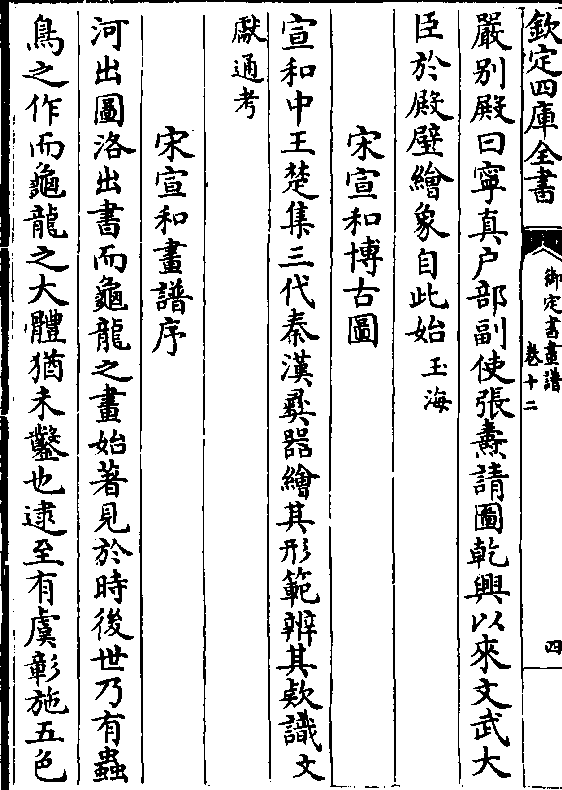 欽定四庫全書
御定書畫譜
卷十二
四
嚴别殿曰寧真户部副使張燾請圖乾興以來文武大
臣於殿壁繪象自此始玉海
宋宣和博古圖
宣和中王楚集三代秦漢彛器繪其形範辨其欵識文
獻通考
宋宣和畫譜序
河出圖洛出書而龜龍之畫始著見於時後世乃有蟲
鳥之作而龜龍之大體猶未鑿也逮至有虞彰施五色